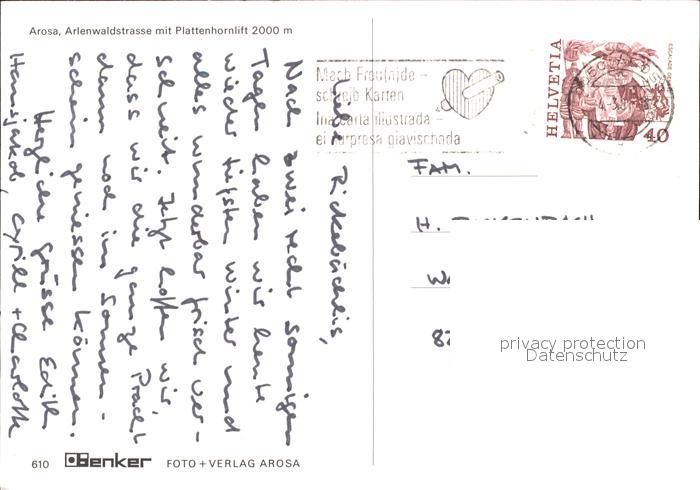 Arosa, Arlenwaldstrasse mit Plattenhornlift 2000 m
Liebe Rickebächlis,
Nach zwei recht sonnigen
Tagen haben wir heute
wieder tiefsten Winter und
alles wunderbar frisch ver-
schneit. Jetzt hoffen wir,
dass wir die ganze Pracht
dann noch im Sonnen-
schein geniessen können.
Herzliche Grüsse Edith
Hansjakob, Cyrill + Charlotte
Mach Freu(n)de -
schreib Karten
Ina carta illustrada -
ei surpresa giavischada
HELVETIA
40
FAM.
H.
W
82
privacy protection
Datenschutz
610 Benker FOTO + VERLAG AROSA